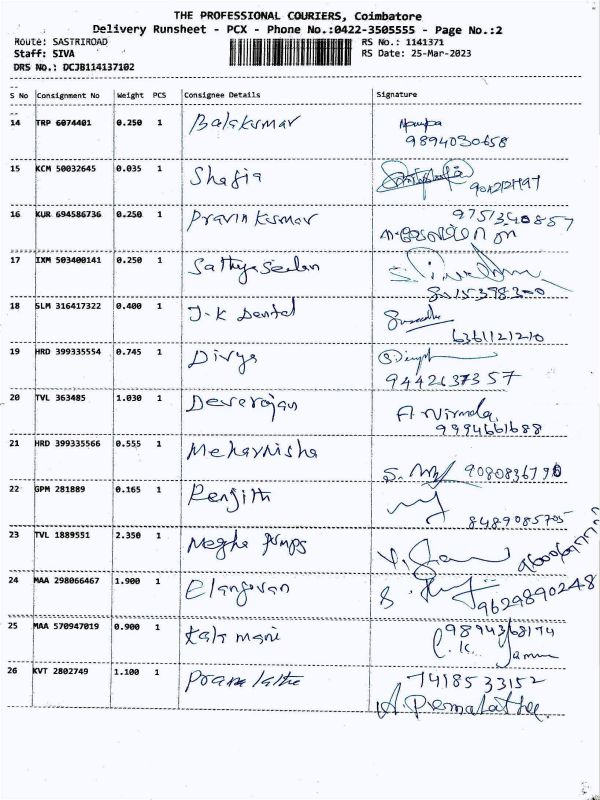 THE PROFESSIONAL COURIERS, Coimbatore
Delivery Runsheet - PCX - Phone No.:0422-3505555 - Page No.:2
Route: SASTRIROAD RS No.: 1141371
Staff: SIVA RS Date: 25-Mar-2023
DRS No.: DCJB114137102
S No Consignment No Weight PCS Consignee Details Signature
14 TRP 6074401 0.250 1 Balakumar
9894030658
15 KCM 50032645 0.035 1 Shafia
16 KUR 694586736 0.250 1 Pravin Kumar 9751340857
17 IXM 503400141 0.250 1 Sathya Seelan
18 SLM 316417322 0.400 1 J-K Dental
6361121210
19 HRD 399335554 0.745 1 Divya
9442637357
20 TVL 363485 1.030 1 Devarajan A. Nirmala
9994661688
21 HRD 399335566 0.555 1 Meharnisha
9080836770
22 GPM 281889 0.165 1 Renjith
8489085705
23 TVL 1889551 2.350 1 Megha Pumps
24 MAA 298066467 1.900 1 Elangovan
9629890248
25 MAA 570947019 0.900 1 Kala mani 9894368174
26 KVT 2802749 1.100 1 Prema latha 7418533152
A. Premalatha